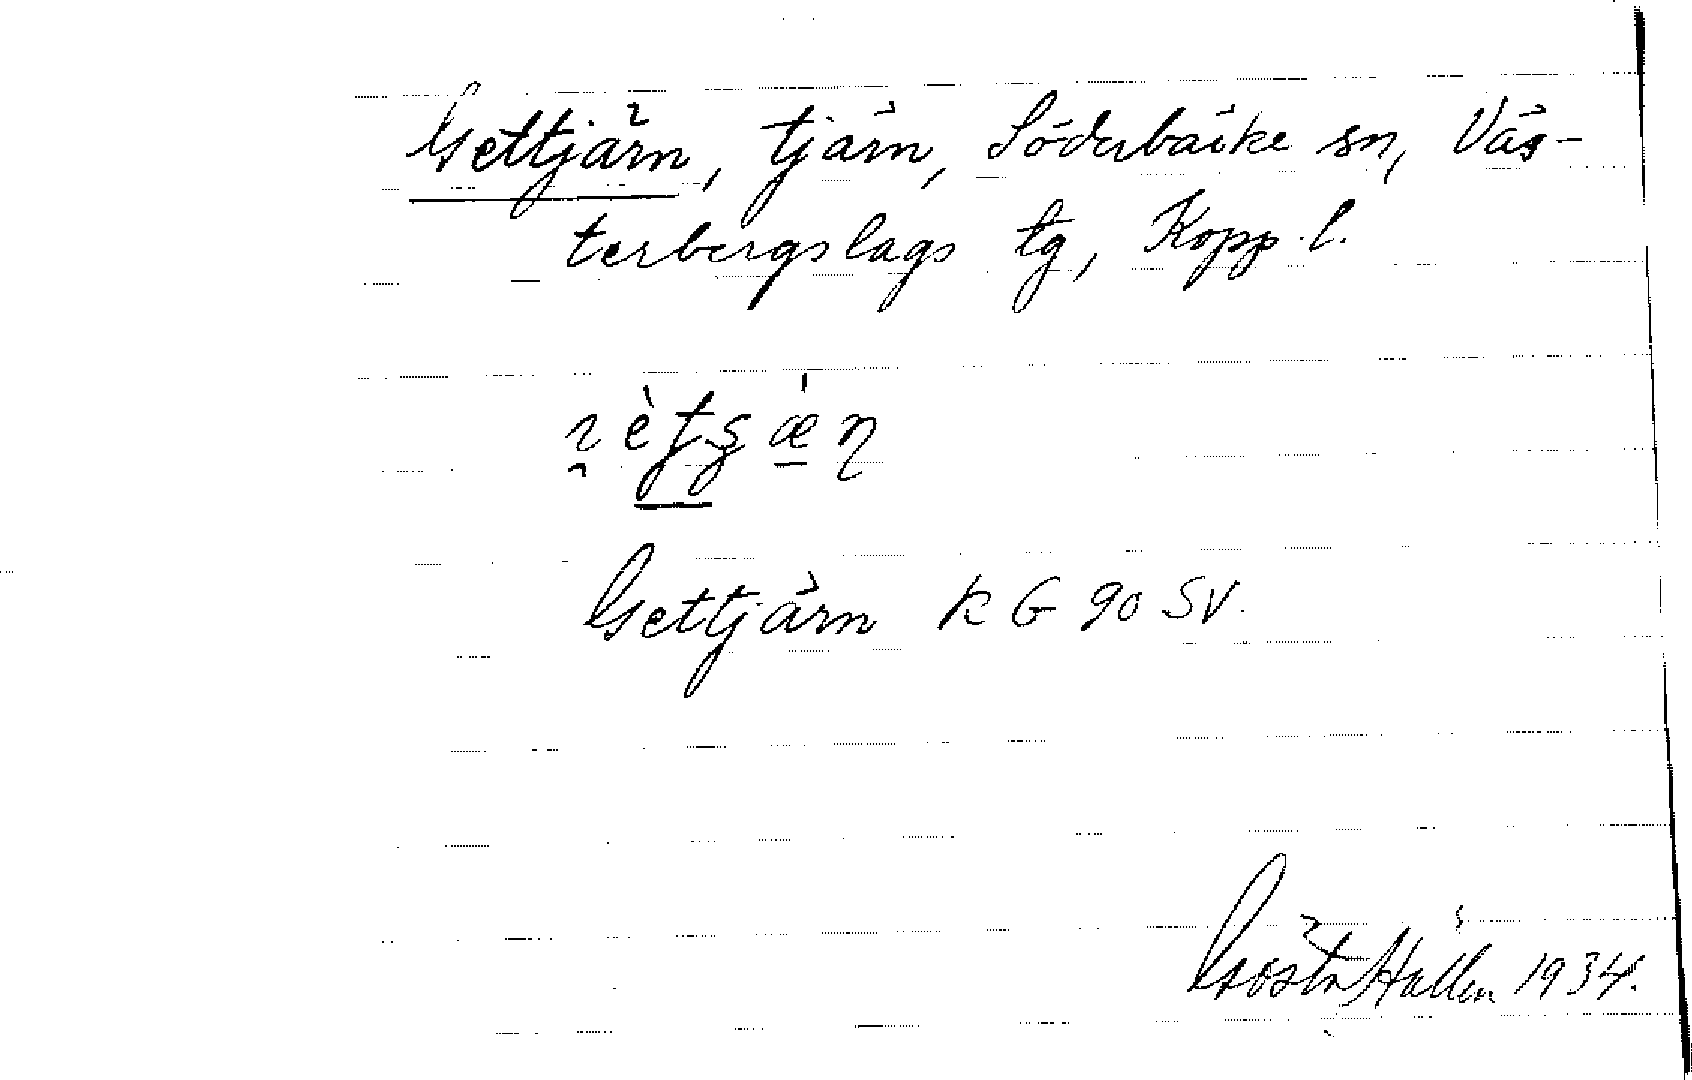 Gettjärn, tjärn, Söderbärke sn, Väs-
terbergslags tg, Kopp. l.
Gettjärn k G 90 SV.
Gösta Hallén 1934.